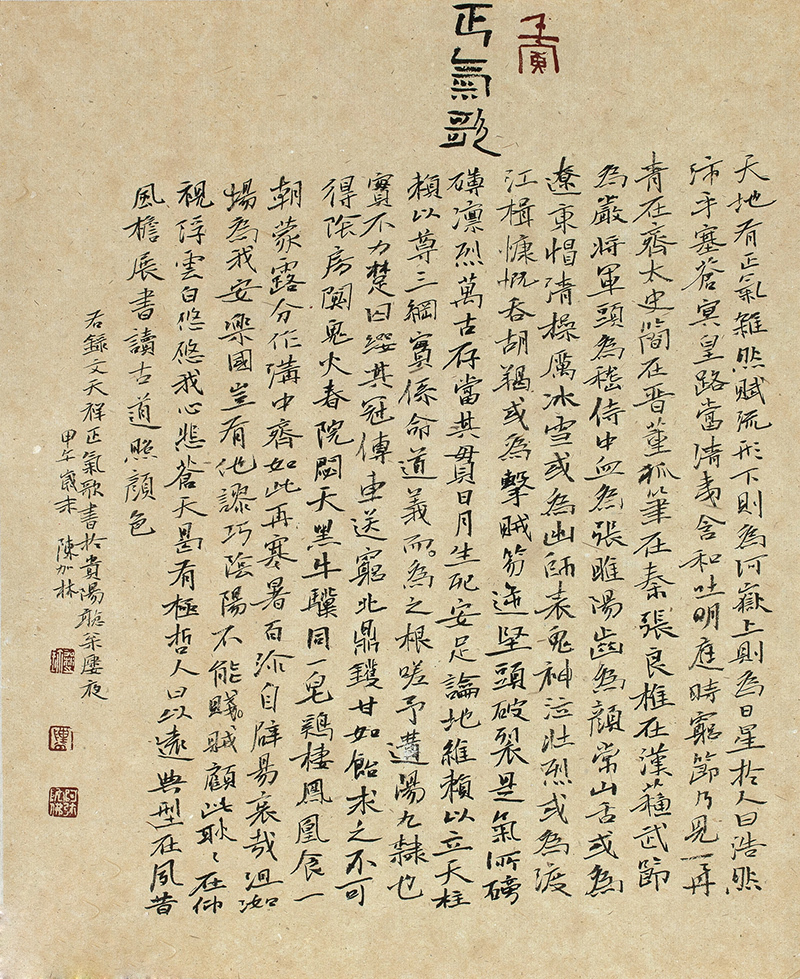 壬寅
正氣歌
天地有正氣雜然賦流形下則為河嶽上則為日星於人曰浩然
沛乎塞蒼冥皇路當清夷含和吐明庭時窮節乃見一
青在齊太史簡在晉董狐筆在秦張良椎在漢蘇武節
為嚴將軍頭為嵇侍中血為張睢陽齒為顏常山舌或為
遼東帽清操厲冰雪或為出師表鬼神泣壯烈或為渡
江楫慷慨吞胡羯或為擊賊笏逆豎頭破裂是氣所磅
礴凜烈萬古存當其貫日月生死安足論地維賴以立天柱
賴以尊三綱實係命道義而為之根嗟予遘陽九隸也
實不力楚囚纓其冠傳車送窮北鼎鑊甘如飴求之不可
得陰房闃鬼火春院閟天黑牛驥同一皂鷄棲鳳凰食一
朝蒙露分作溝中瘠如此再寒暑百沴自辟易哀哉沮洳
場為我安樂國豈有他謬巧陰陽不能賤賊顧此耿〻在仰
視浮雲白悠悠我心悲蒼天曷有極哲人日以遠典型在夙昔
風檐展書讀古道照顏色
右錄文天祥正氣歌書於貴陽夜
甲午歲末 陳加林